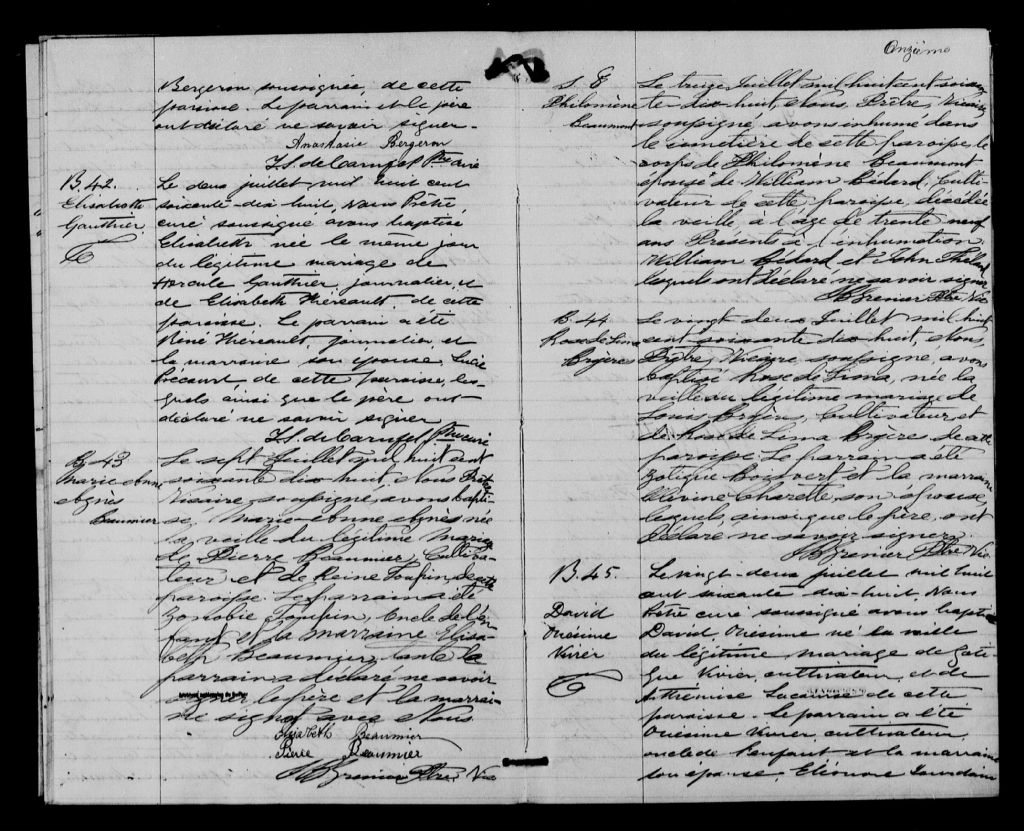 Bergeron soussignée, de cette
paroisse. Le parrain et le père
ont déclaré ne savoir signer.
Anastasie Bergeron
Ptre curé
B. 42.
Elisabeth
Gauthier
Le deux juillet mil huit cent
soixante-dix huit, nous Prêtre
curé soussigné avons baptisé
Elisabeth née le même jour
du légitime mariage de
Hercule Gauthier, journalier, et
de Elisabeth Héreault, de cette
paroisse. Le parrain a été
René Héreault journalier et
la marraine son épouse Lucie
Précourt, de cette paroisse, les-
quels ainsi que le père ont
déclaré ne savoir signer
Ptre curé
B 43
Marie Anne
Agnès
Beaumier
Le sept Juillet mil huit cent
soixante dix huit, Nous Prêtre
Vicaire, soussigné avons bapti-
sé, Marie-Anne Agnès née
la veille du légitime mariage
de Pierre Beaumier, Cultiva-
teur et de Reine Toupin, de cette
paroisse. Le parrain a été
Zénobie Toupin, oncle de l'en
fant et la marraine Elisa-
beth Beaumier, tante. Le
parrain a déclaré ne savoir
signer, le père et la marrai-
ne signent avec Nous
Elisabeth Beaumier
Pierre Beaumier
Grenier Ptre Vic
Onzième
S. 8
Philomène
Beaumont
Le treize Juillet mil huit cent soixan
te dix-huit, Nous, Prêtre, Vicaire,
soussigné, avons inhumé dans
le cimetière de cette paroisse, le
corps de Philomène Beaumont
épouse de William Bédard, Culti-
vateur de cette paroisse, décédée
la veille, à l'âge de trente neuf
ans. Présents à l'inhumation
William Bédard et John
lesquels ont déclaré ne savoir signer
Grenier Ptre Vic
B. 44
Rose de Lima
Brière
Le vingt deux Juillet mil huit
cent soixante dix huit, Nous,
Prêtre, Vicaire soussigné, avons
baptisé Rose de Lima, née la
veille du légitime mariage de
Louis Brière, Cultivateur, et
de Rose de Lima Brière de cette
paroisse. Le parrain a été
Zotique Boisvert et la marraine
Olivine Charette, son épouse,
lesquels, ainsi que le père, ont
déclaré ne savoir signer.
Grenier Ptre Vic
B. 45.
David
Onésime
Vivier
Le vingt-deux juillet mil huit
cent soixante dix-huit, Nous
Prêtre curé soussigné avons baptisé
David Onésime né la veille
du légitime mariage de
Vivier, cultivateur, et de
de cette
paroisse. Le parrain a été
Onésime Vivier, cultivateur,
oncle de l'enfant et la marraine
son épouse, Eléonore Jourdain